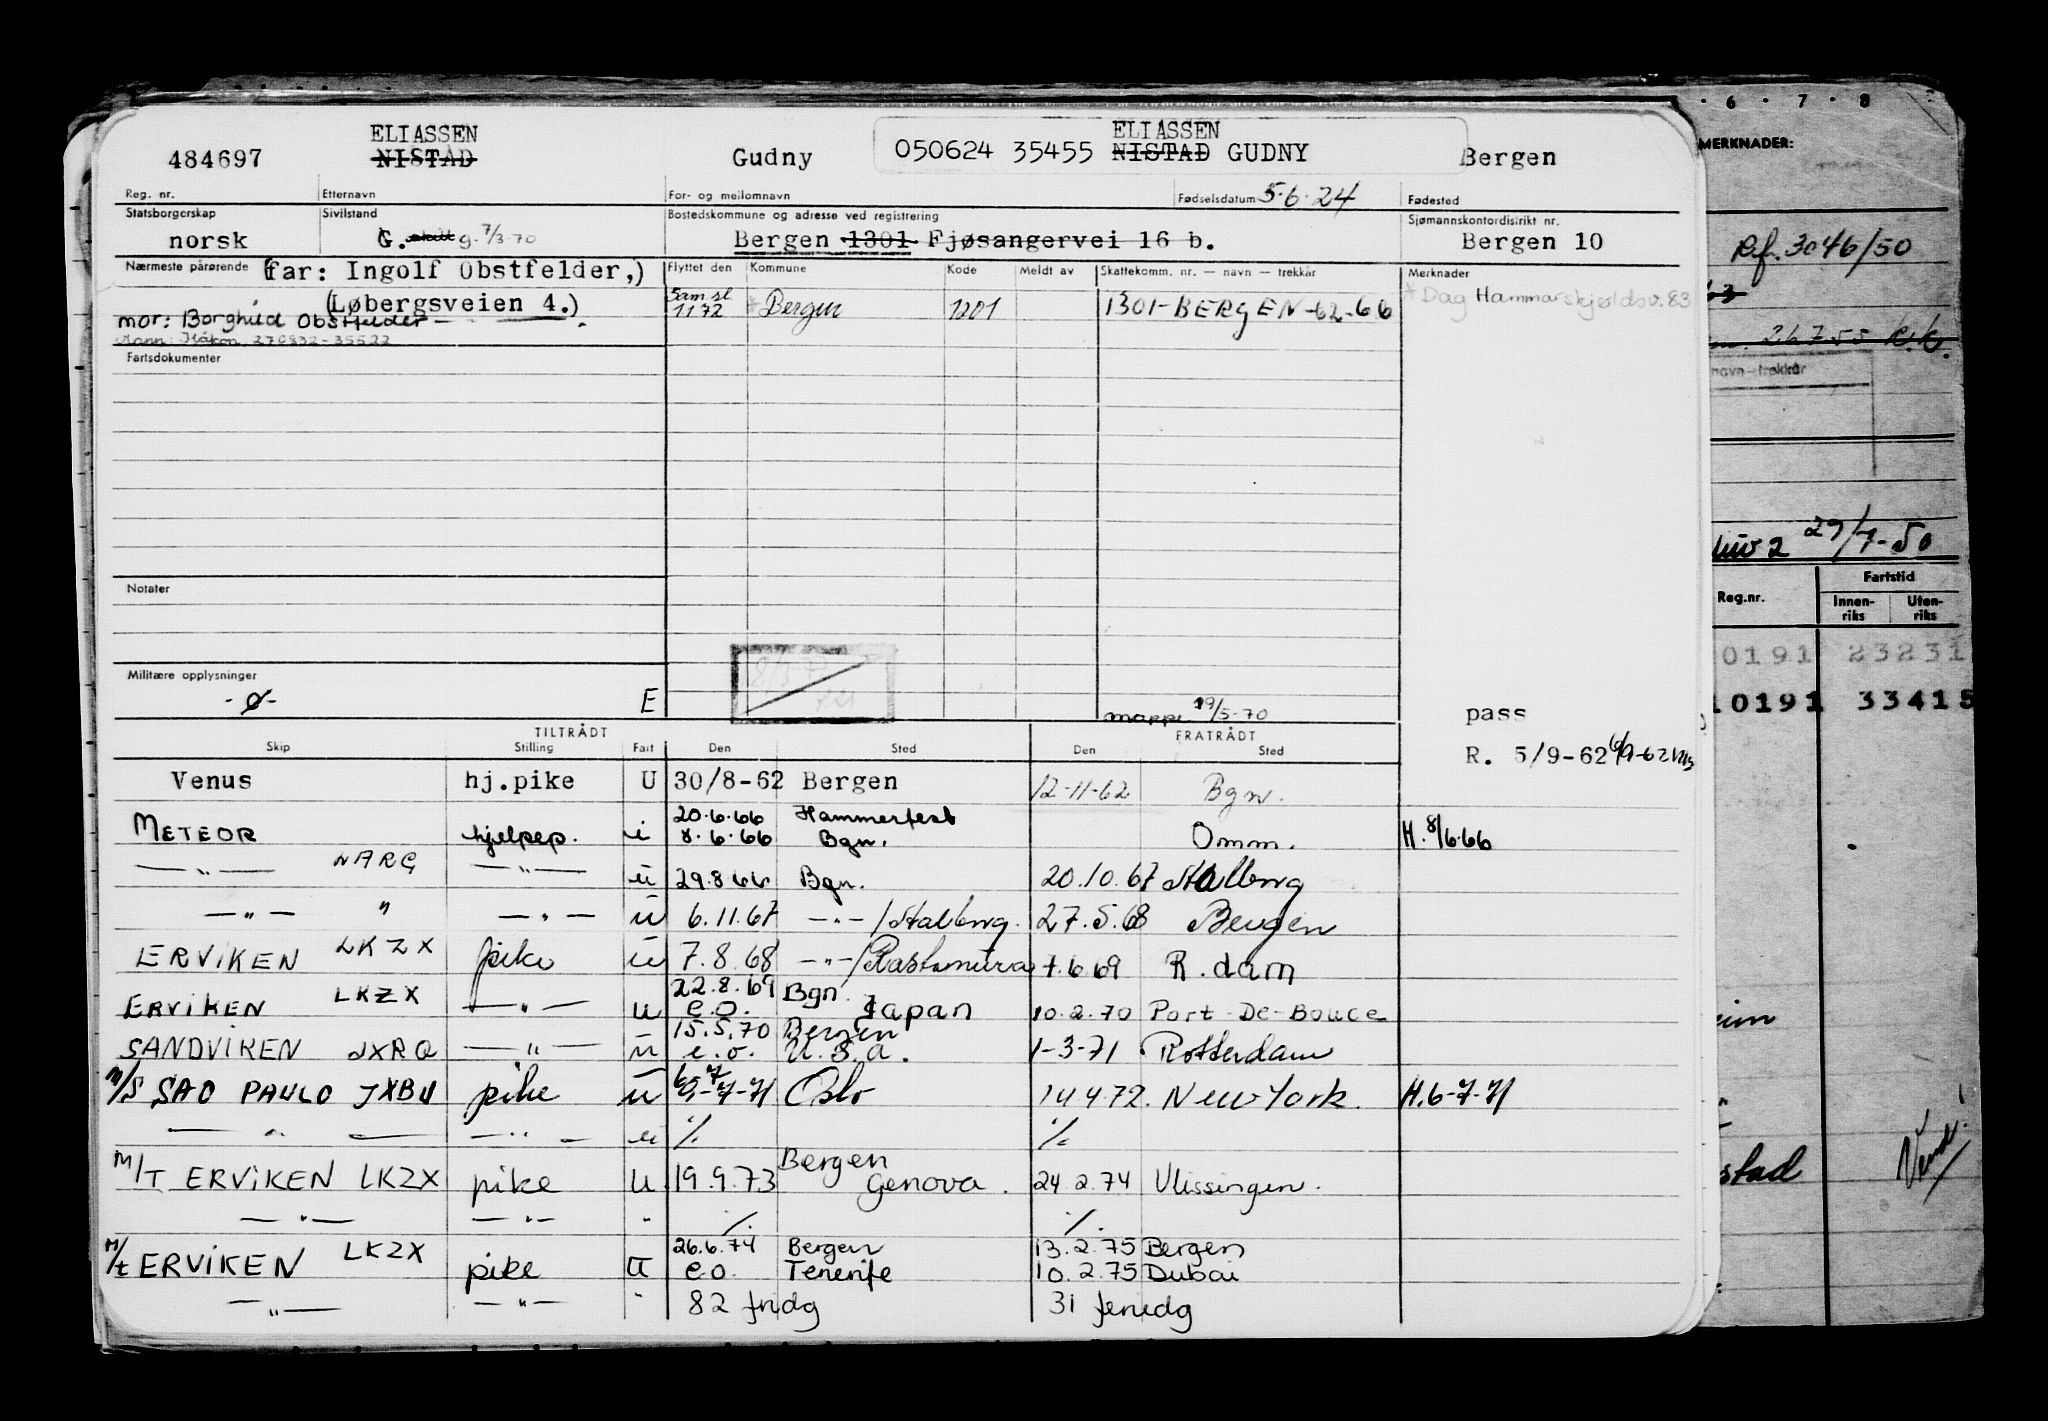 ELIASSEN ELIASSEN
484697 NISTAD Gudny 050624 35455 NISTAD GUDNY Bergen
Reg. nr. Etternavn For- og mellomnavn Fødselsdatum 5.6.24 Fødested
Statsborgerskap Sivilstand Bostedskommune og adresse ved registrering Sjømannskontordistrikt nr.
norsk G. g. 7/3-70 Bergen 1301 Fjøsangervei 16 b. Bergen 10
Nærmeste pårørende (far: Ingolf Obstfelder,) Flyttet den Kommune Kode Meldt av Skattekomm. nr. — navn — trekkår Merknader
(Løbergsveien 4.) 1172 * Bergen 1201 1301-BERGEN-62-66 * Dag Hammarskjøldsv. 83
mor: Borghild Obstfelder
Mann: Håkon 270832-35522
Fartsdokumenter
Notater
Militære opplysninger
-ø- E mappe 19/5-70 pass
TILTRÅDT FRATRÅDT
Skip Stilling Fart Den Sted Den Sted
R. 5/9-62
Venus hj.pike U 30/8-62 Bergen 12-11-62 Bgn.
20.6.66 Hammerfest
METEOR hjelpep. i 8.6.66 Bgn. Omm. H. 8/6.66
—"— —"— u 29.8.66 Bgn. 20.10.67
—"— " —"— u 6.11.67 —"—/ 27.5.68 Bergen
ERVIKEN LKZX pike u 7.8.68 —"—/Rastanura 69 R.dam
22.8.69 Bgn.
ERVIKEN LKZX —"— u e.o. Japan 10.2.70 Port-De-Bouce
15.5.70 Bergen
SANDVIKEN —"— u e.o. U.S.A. 1-3-71 Rotterdam
M/S SAO PAULO JXBU pike u Oslo 14.4.72. New York. H.6-7-71
—"— —"— u % %
M/T ERVIKEN LKZX pike U 19.9.73 Bergen
Genova. 24.2.74 Vlissingen.
—"— —"— " % %
26.6.74 Bergen 13.2.75 Bergen
M/t ERVIKEN LKZX pike U e.o. Tenerife 10.2.75 Dubai
—"— —"— " 82 31
6 . 7 . 8
MERKNADER:
Rf. 3046/50
26755
navn — trekkår
29/7-50
Reg.nr. Fartstid
Innen-riks Uten-riks
0191 23231
10191 33415